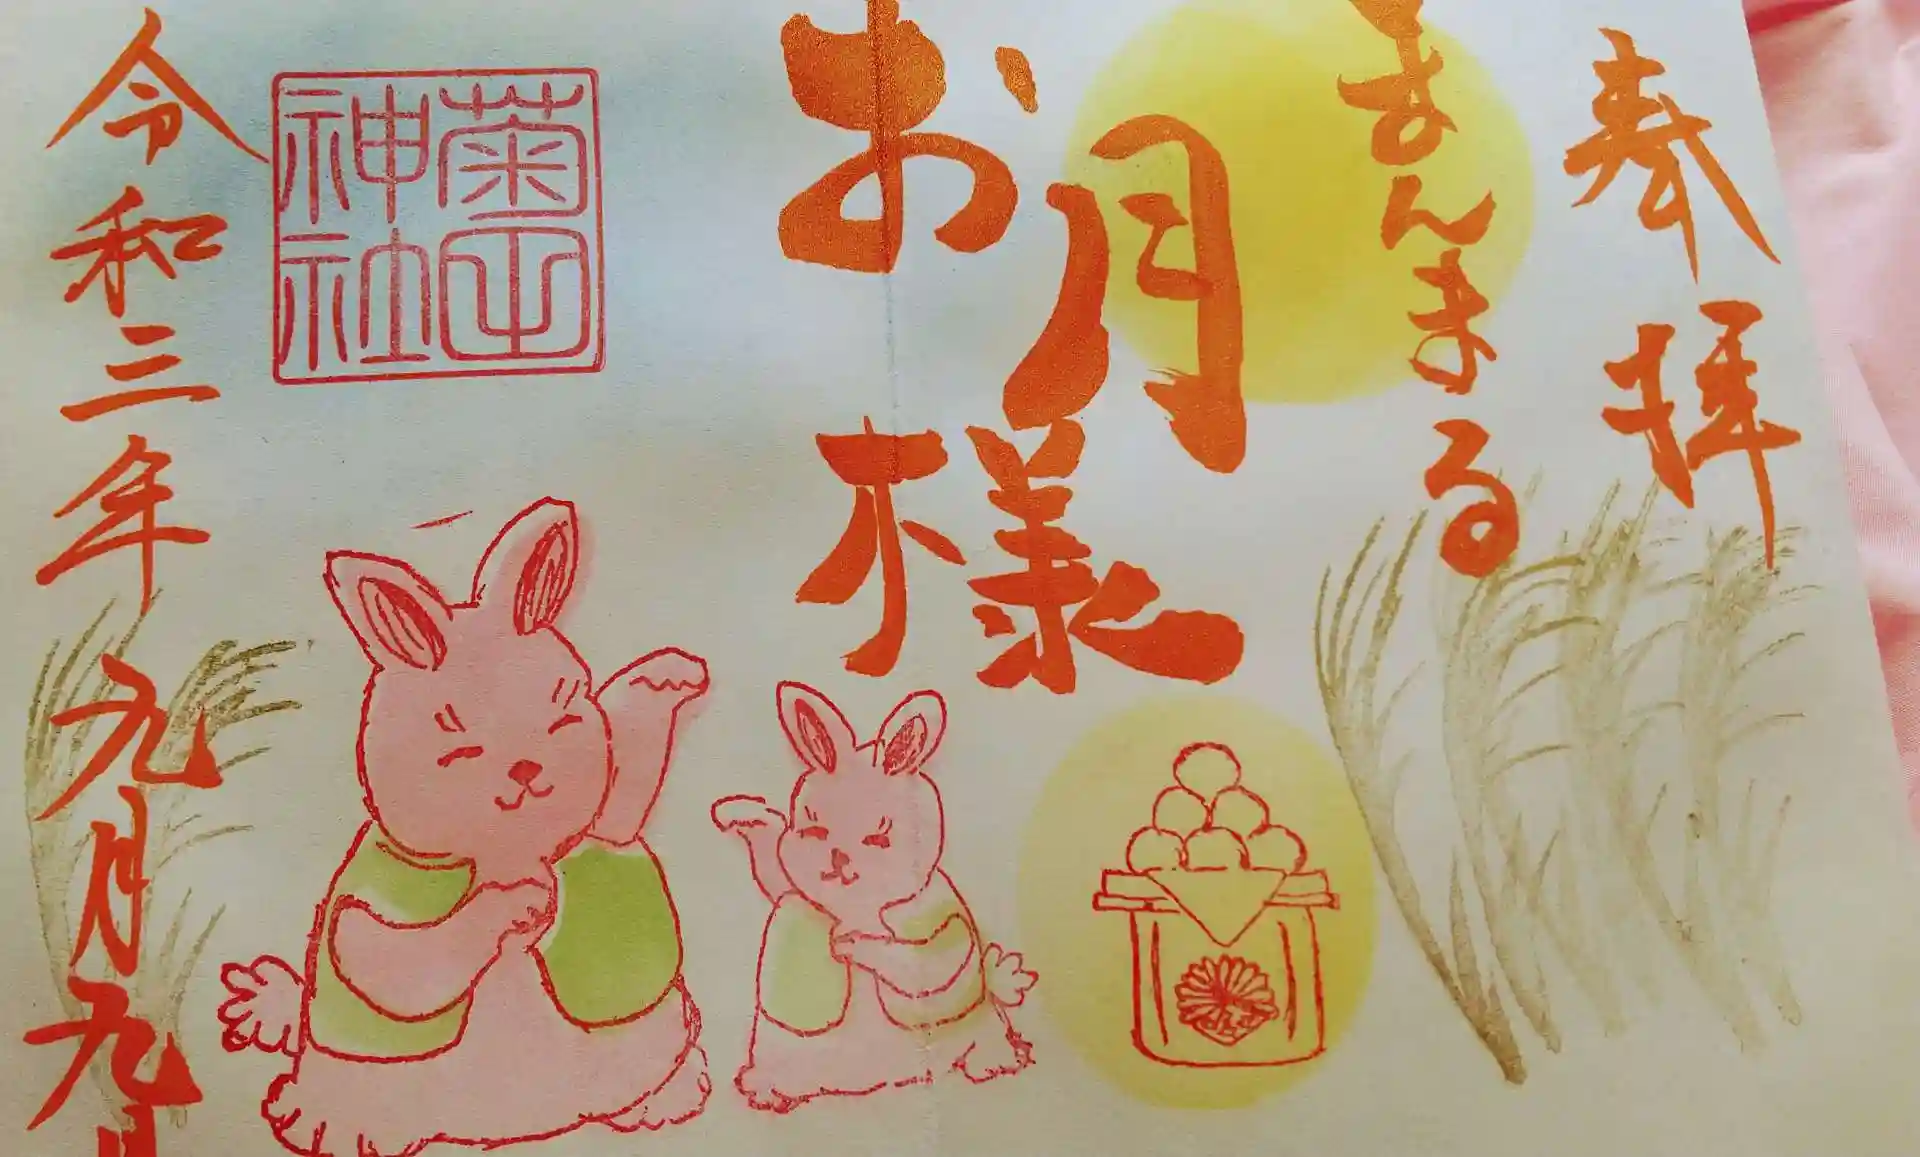 奉拝
まんまる
お月様
菊田
神社
令和三年九月九日